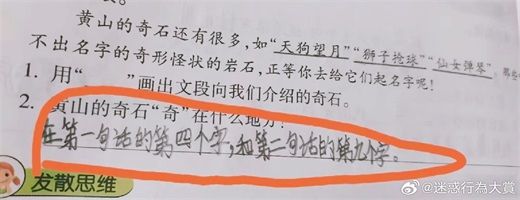 黄山的奇石还有很多,如“天狗望月”“狮子抢球”“仙女弹琴”。那些
不出名字的奇形怪状的岩石,正等你去给它们起名字呢!
1. 用“   ”画出文段向我们介绍的奇石。
2. 黄山的奇石“奇”在什么地方?
在第一句话的第四个字,和第二句话的第九个字。
发散思维
@迷惑行為大賞